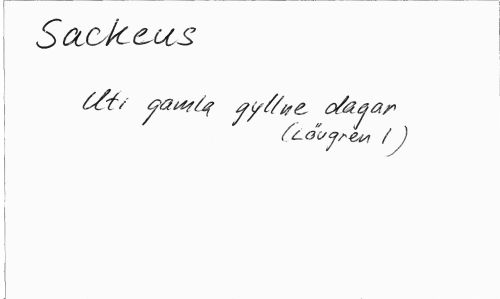 Sackeus
Uti gamla gyllne dagar
(Lövgren 1)